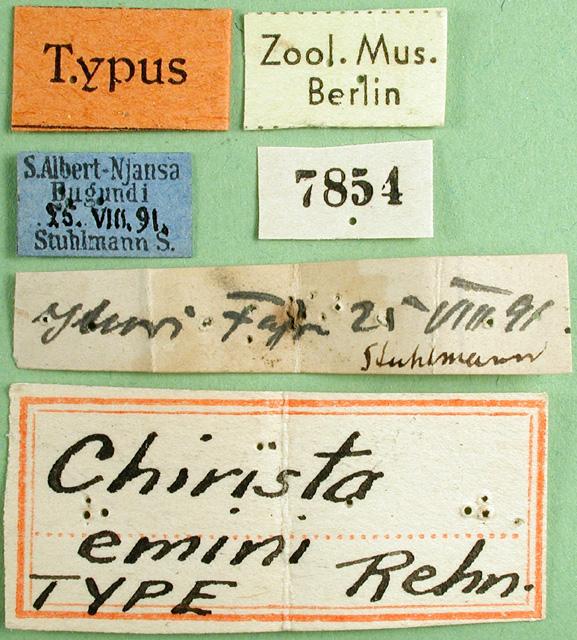 Typus
Zool. Mus.
Berlin
S. Albert-Njansa
Bugundi
25. VIII. 91.
Stuhlmann S.
7854
25 VIII. 91.
Stuhlmann
Chirista
emini
TYPE Rehn.